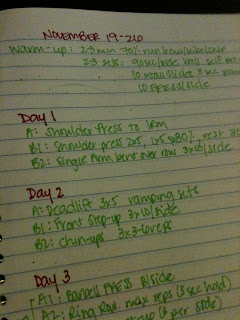 NOVEMBER 19-26
Warm-up: 2-3 min 70% run/row/
2-3 sets: 90 sec/side ball self
10 wall slides 3 sec
10 /side
Day 1
A: Shoulder Press to 1RM
B1: Shoulder press 2x5, 1x5 @ 80% rest
B2: Single Arm bent over row 3x10/side
Day 2
A: Deadlift 3x5 ramping sets
B1: Front Step-up 3x10/side
B2: chin-ups 3x3-6 reps
Day 3
A1: Barbell PRESS 8/side
A2: Ring Row max reps (3 sec hold)
per side)